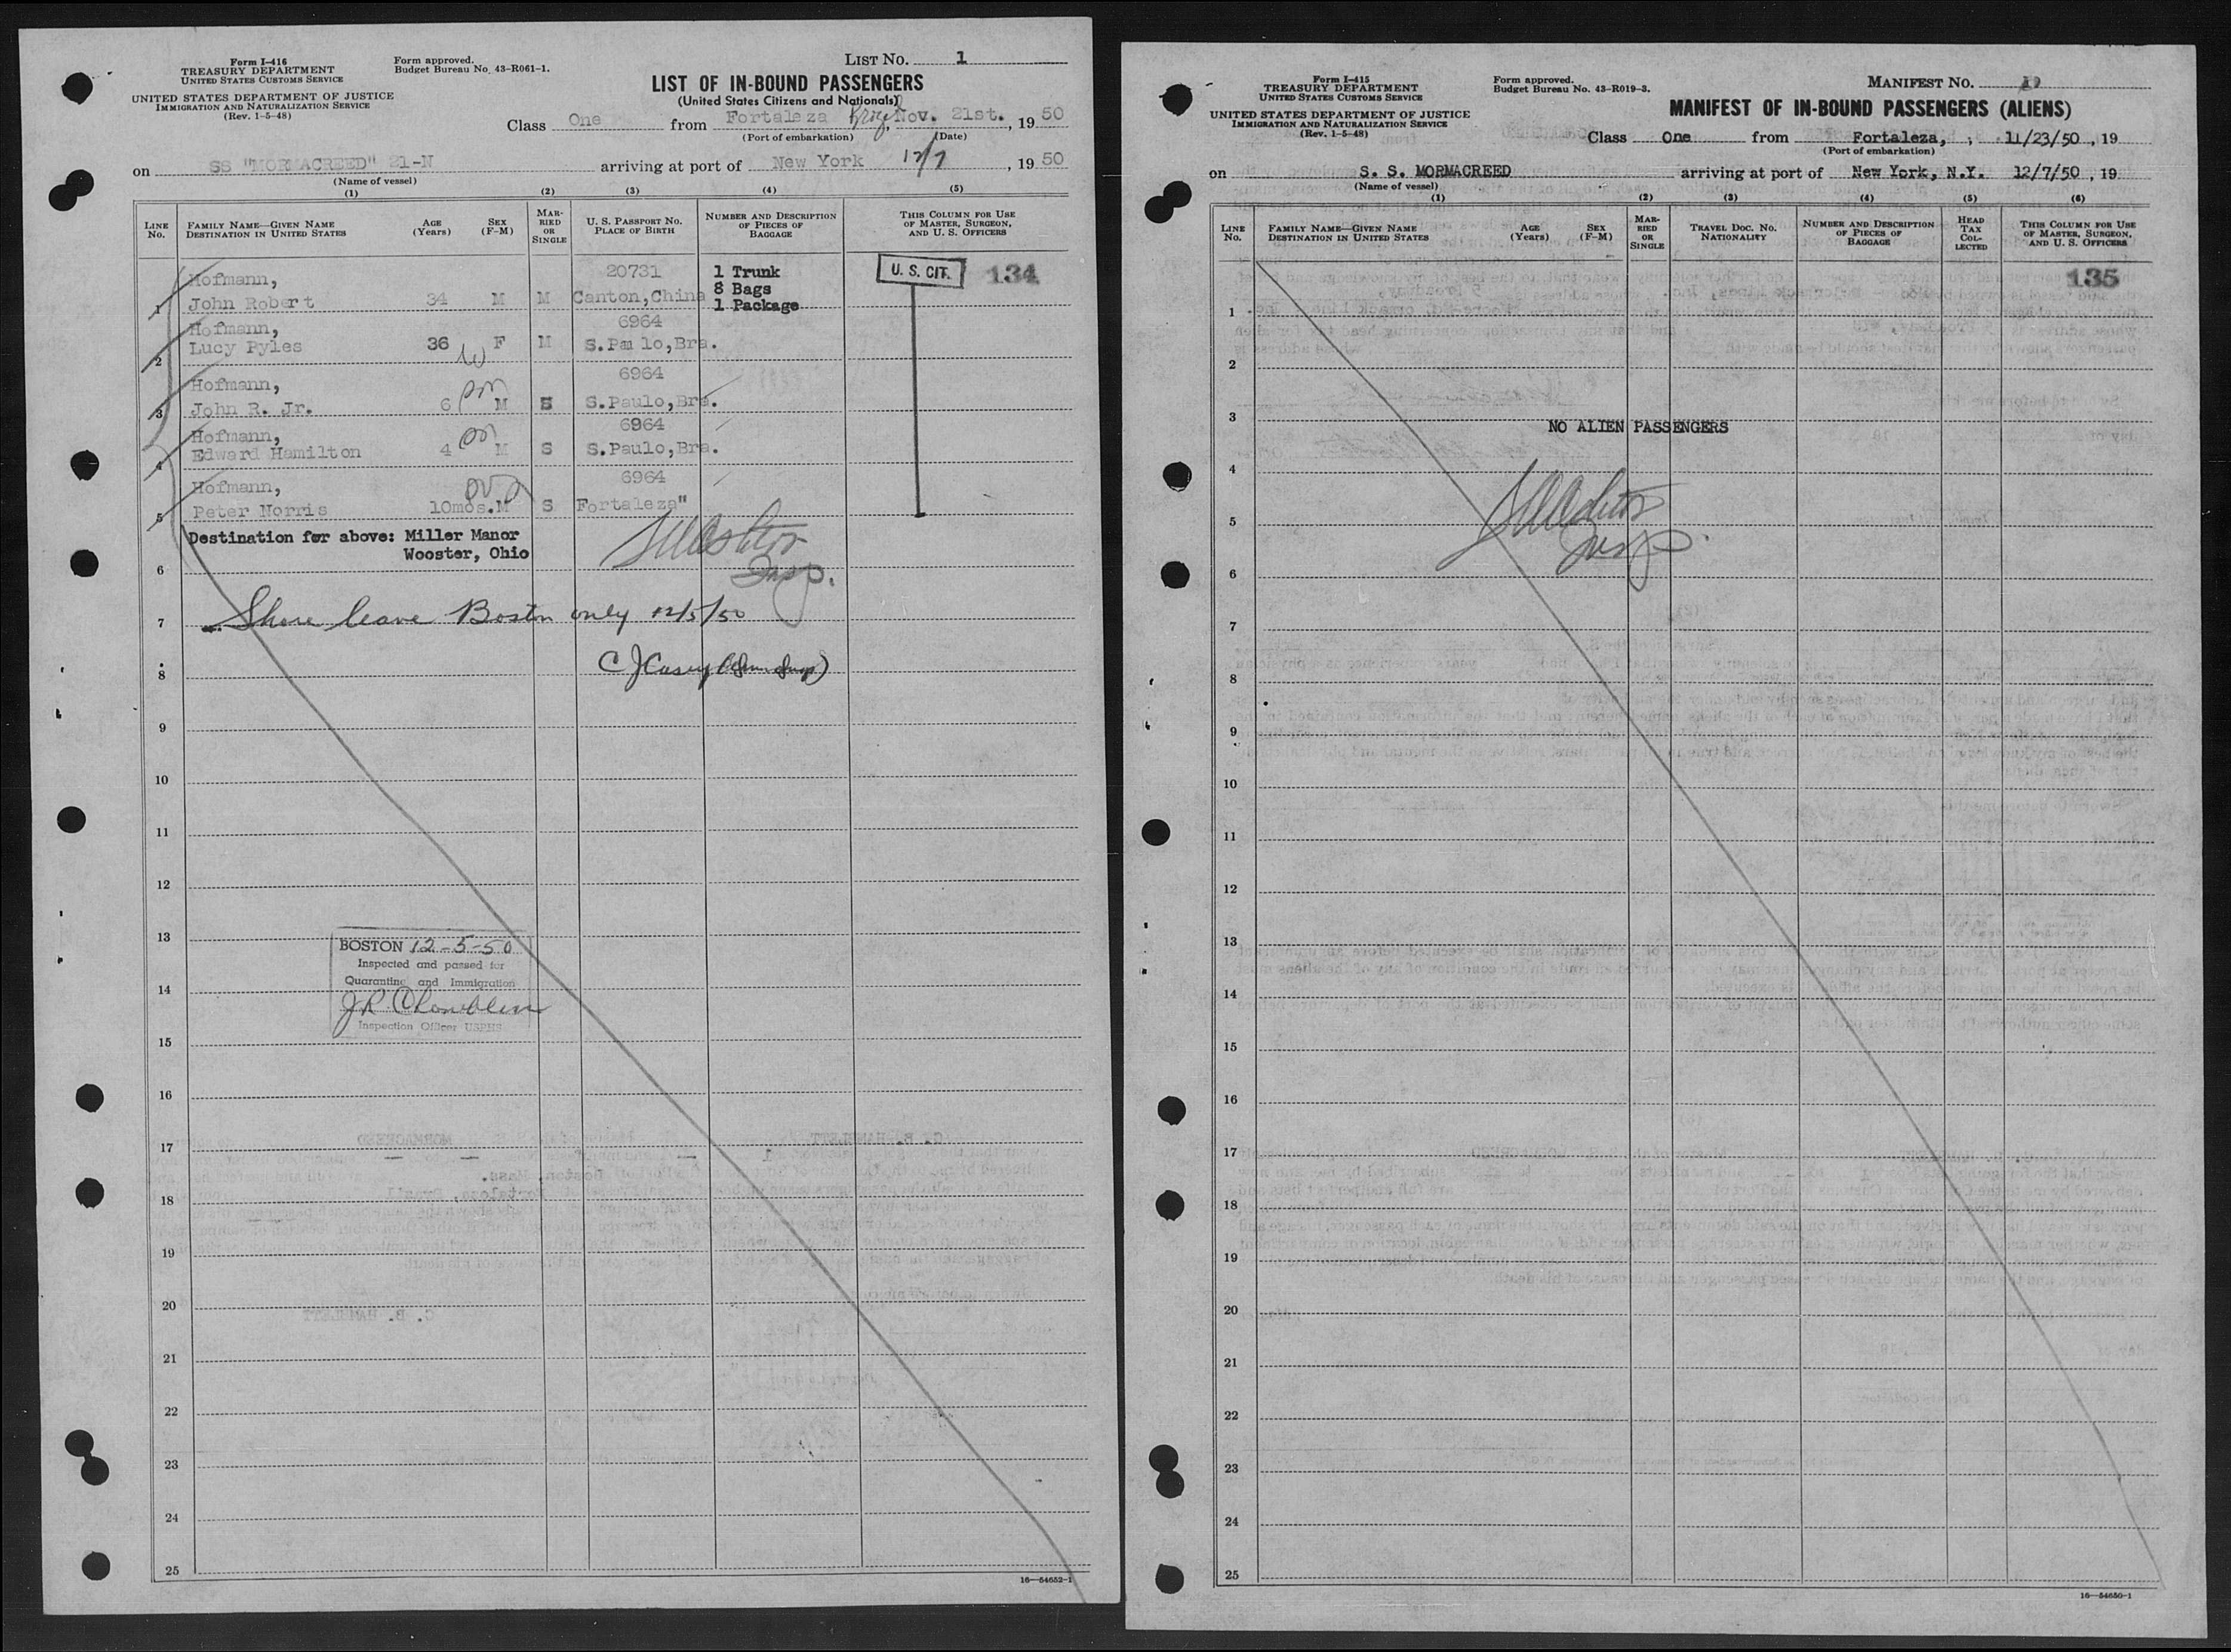 Form I-416
TREASURY DEPARTMENT
UNITED STATES CUSTOMS SERVICE
UNITED STATES DEPARTMENT OF JUSTICE
IMMIGRATION AND NATURALIZATION SERVICE
(Rev. 1-5-48)
Form approved.
Budget Bureau No. 43-R061-1.
LIST No. 1
LIST OF IN-BOUND PASSENGERS
(United States Citizens and Nationals)
Class One from Fortaleza Nov. 21st. , 19 50
(Port of embarkation) (Date)
on SS "MORMACREED" 21-N arriving at port of New York 12/7 , 19 50
(Name of vessel)
(1) (2) (3) (4) (5)
LINE No. FAMILY NAME—GIVEN NAME DESTINATION IN UNITED STATES AGE (Years) SEX (F-M) MARRIED OR SINGLE U. S. PASSPORT No. PLACE OF BIRTH NUMBER AND DESCRIPTION OF PIECES OF BAGGAGE THIS COLUMN FOR USE OF MASTER, SURGEON, AND U. S. OFFICERS
Hofmann, 20731 1 Trunk U. S. CIT. 134
8 Bags
1 John Robert 34 M M Canton,China 1 Package
Hofmann, 6964
2 Lucy Pyles 36 F M S.Paulo,Bra.
Hofmann, 6964
3 John R. Jr. 6 M S S.Paulo,Bra.
Hofmann, 6964
4 Edward Hamilton 4 M S S.Paulo,Bra.
Hofmann, 6964
5 Peter Norris 10mos.M S Fortaleza"
Destination for above: Miller Manor
Wooster, Ohio
Insp.
6
7 Shore leave Boston only 12/5/50
8 C J Casey
9
10
11
12
13
BOSTON 12-5-50
Inspected and passed for
Quarantine and Immigration
14
Inspection Officer USPHS
15
16
17
18
19
20
21
22
23
24
25
16—54652-1
Form I-415
TREASURY DEPARTMENT
UNITED STATES CUSTOMS SERVICE
UNITED STATES DEPARTMENT OF JUSTICE
IMMIGRATION AND NATURALIZATION SERVICE
(Rev. 1-5-48)
Form approved.
Budget Bureau No. 43-R019-3.
MANIFEST No.
MANIFEST OF IN-BOUND PASSENGERS (ALIENS)
Class One from Fortaleza, , 11/23/50 , 19
(Port of embarkation)
on S. S. MORMACREED arriving at port of New York, N.Y. 12/7/50 , 19
(Name of vessel)
(1) (2) (3) (4) (5) (6)
LINE No. FAMILY NAME—GIVEN NAME DESTINATION IN UNITED STATES AGE (Years) SEX (F-M) MARRIED OR SINGLE TRAVEL DOC. No. NATIONALITY NUMBER AND DESCRIPTION OF PIECES OF BAGGAGE HEAD TAX COLLECTED THIS COLUMN FOR USE OF MASTER, SURGEON, AND U. S. OFFICERS
135
1
2
3 NO ALIEN PASSENGERS
4
5
Insp.
6
7
8
9
10
11
12
13
14
15
16
17
18
19
20
21
22
23
24
25
16—54650-1